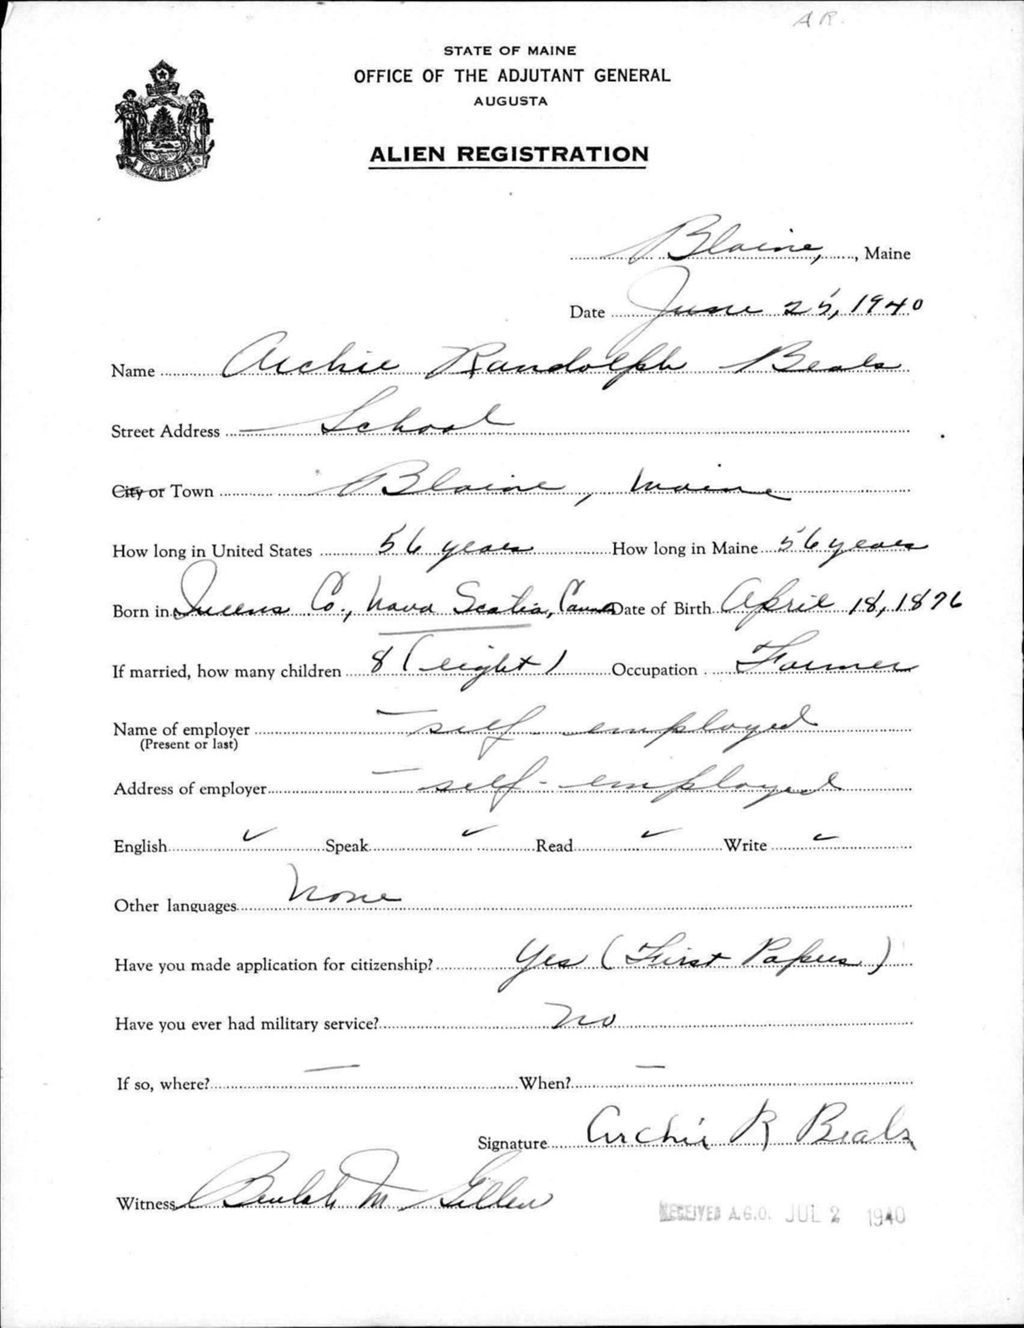 A R.
STATE OF MAINE
OFFICE OF THE ADJUTANT GENERAL
AUGUSTA
ALIEN REGISTRATION
MAINE
Blaine, , Maine
Date June 25, 1940
Name Archie Randolph Beals
Street Address School
City or Town Blaine, Maine
How long in United States 56 years How long in Maine 56 years
Born in Queens Co., Nova Scotia, Canada Date of Birth April 18, 1876
If married, how many children 8 (eight) Occupation Farmer
Name of employer self employed
(Present or last)
Address of employer self-employed
English ✓ Speak ✓ Read ✓ Write ✓
Other languages None
Have you made application for citizenship? Yes (First Papers)
Have you ever had military service? No
If so, where? — When? —
Signature Archie R Beals
Witness Beulah M. Gillen
RECEIVED A.G.O. JUL 2 1940